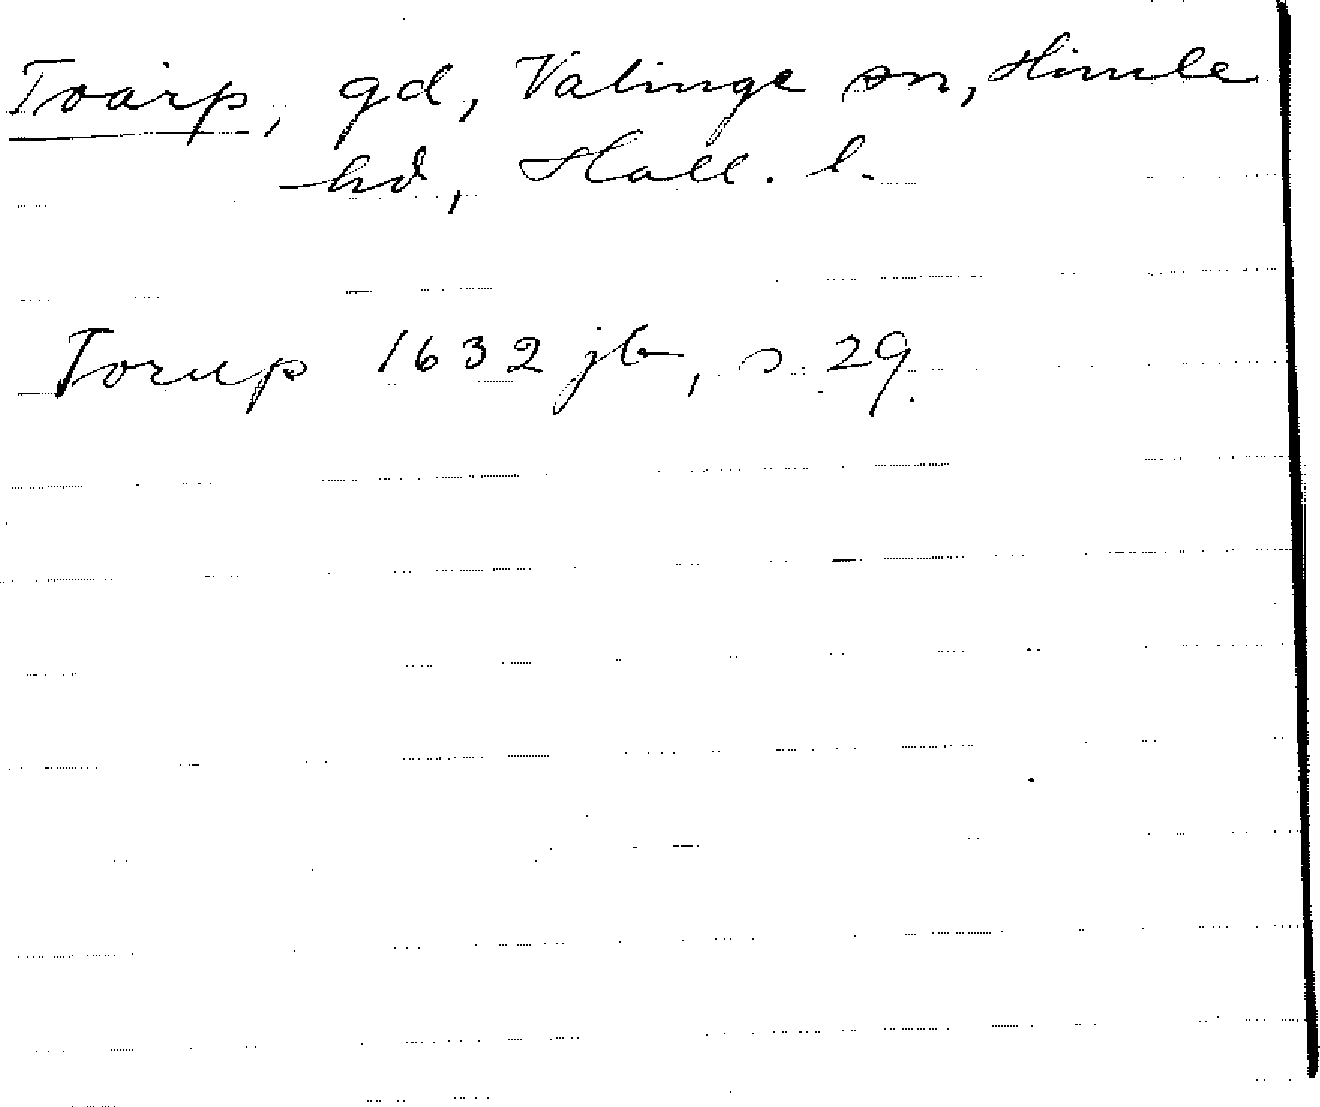 Tvärp, gd, Valinge sn, Himle
hd, Hall. l.
Torup 1632 jb, s. 29.